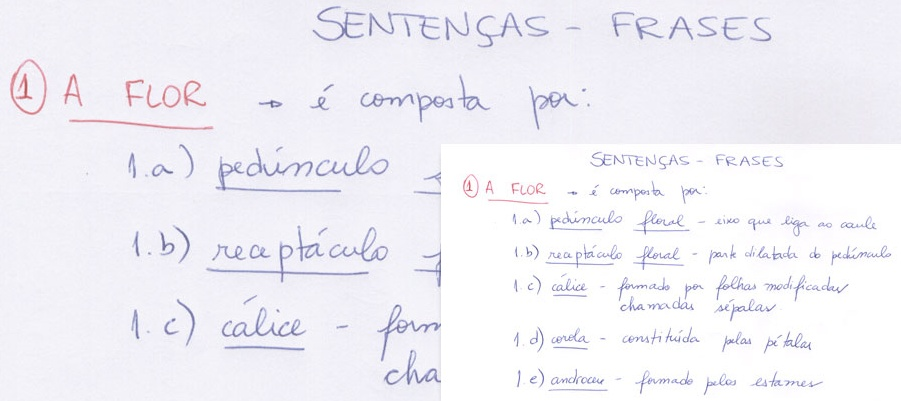 SENTENÇAS - FRASES
1 A FLOR → é composta por:
1.a) pedúnculo
1.b) receptáculo
1.c) cálice - form
cha
SENTENÇAS - FRASES
1 A FLOR → é composta por:
1.a) pedúnculo floral - eixo que liga ao caule
1.b) receptáculo floral - parte dilatada do pedúnculo
1.c) cálice - formado por folhas modificadas
chamadas sépalas
1.d) corola - constituída pelas pétalas
1.e) androceu - formado pelos estames